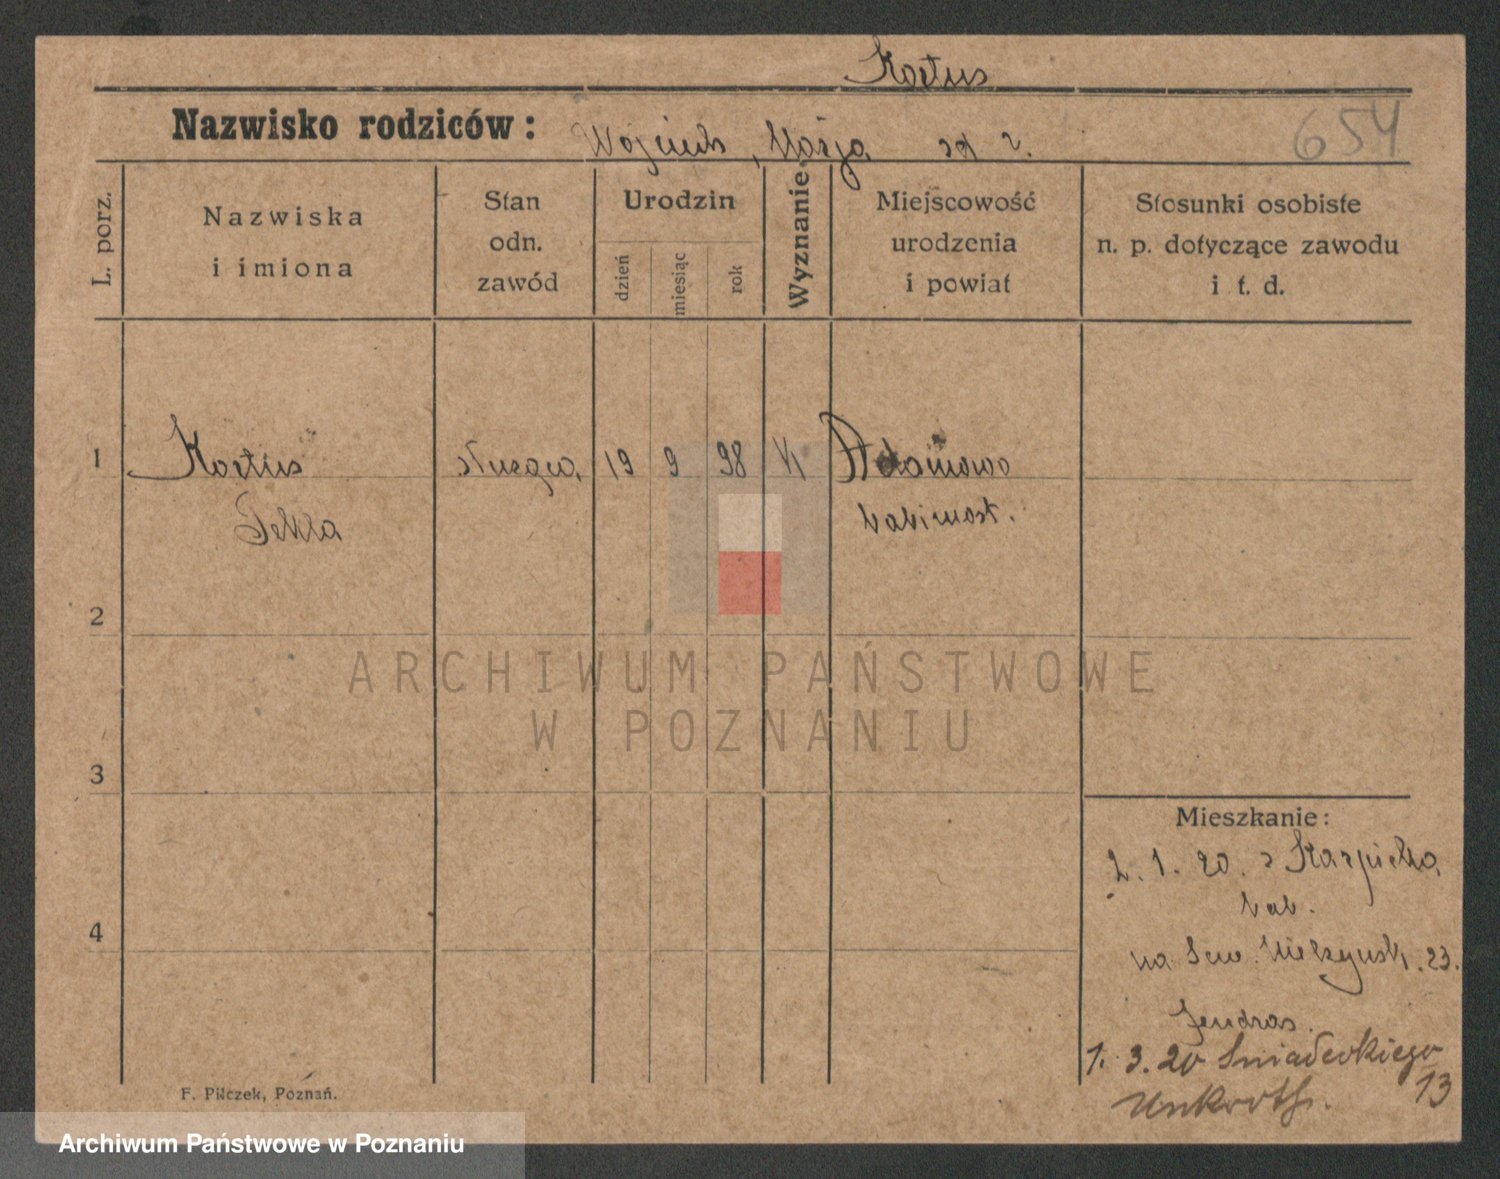 Kortus
Nazwisko rodziców:
Wojciech, Marja
654
L. porz.
Nazwiska
i imiona
Stan
odn.
zawód
Urodzin
dzień
miesiąc
rok
Wyznanie
Miejscowość
urodzenia
i powiat
Stosunki osobiste
n. p. dotyczące zawodu
i t. d.
1 Kortus 19 9 98 Adamowo
Tekla babimost.
2
ARCHIWUM PAŃSTWOWE
W POZNANIU
3
Mieszkanie:
2. 1. 20. z
bab.
4
na 23.
Jendras.
1. 3. 20 Sniadeckiego
13
F. Pilczek, Poznań.
Archiwum Państwowe w Poznaniu